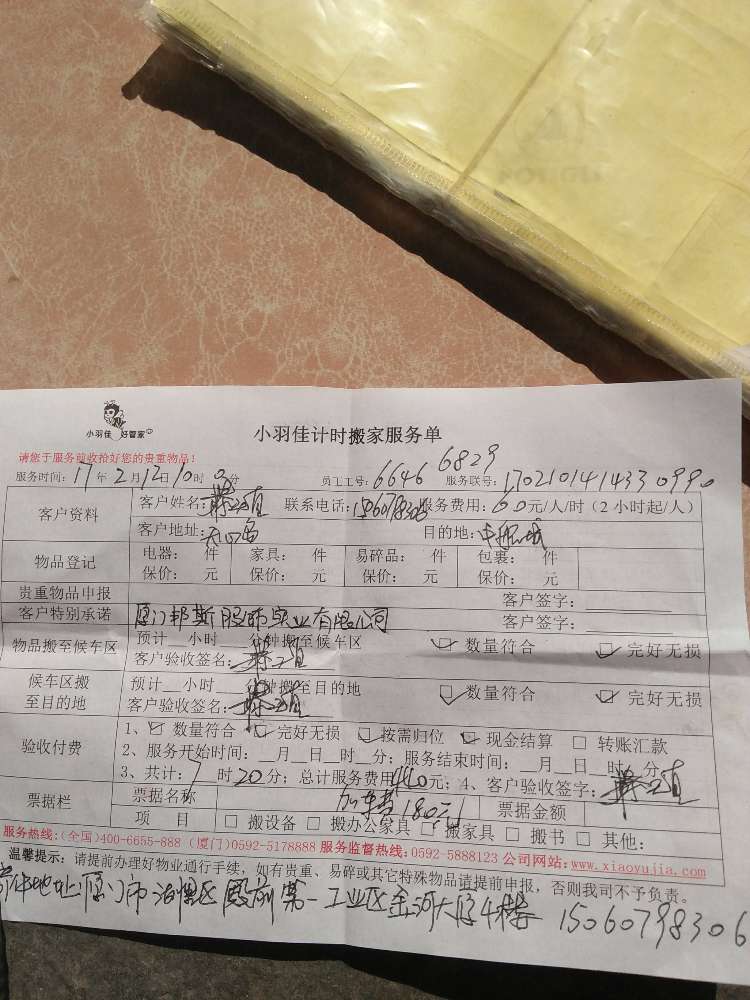 小羽佳 好管家
小羽佳计时搬家服务单
请您于服务前收拾好您的贵重物品！
服务时间：17年2月12日10时0分 员工工号：6646 6829 服务联号：1702101414330990
客户资料 客户姓名： 联系电话： 服务费用：60元/人/时（2小时起/人）
客户地址： 目的地：
物品登记 电器： 件 家具： 件 易碎品： 件 包裹： 件
保价： 元 保价： 元 保价： 元 保价： 元
贵重物品申报 客户签字：
客户特别承诺 厦门邦斯服饰实业有限公司 客户签字：
物品搬至候车区 预计__小时__分钟搬至候车区 ☑ 数量符合 ☑ 完好无损
客户验收签名：
候车区搬至目的地 预计__小时__分钟搬至目的地 ☑ 数量符合 ☑ 完好无损
客户验收签名：
验收付费 1、☑ 数量符合 ☑ 完好无损 ☑ 按需归位 ☑ 现金结算 □ 转账汇款
2、服务开始时间：__月__日__时__分；服务结束时间：__月__日__时__分
3、共计：7时20分；总计服务费用440元；4、客户验收签字：
票据栏 票据名称 加车费180元 票据金额
项 目 □ 搬设备 □ 搬办公家具 ☑ 搬家具 □ 搬书 □ 其他：
服务热线:(全国)400-6655-888 (厦门)0592-5178888 服务监督热线:0592-5888123 公司网站:www.xiaoyujia.com
温馨提示：请提前办理好物业通行手续，如有贵重、易碎或其它特殊物品请提前申报，否则我司不予负责。
地址：厦门市湖里区殿前第一工业区金河大厦4楼 15060798306